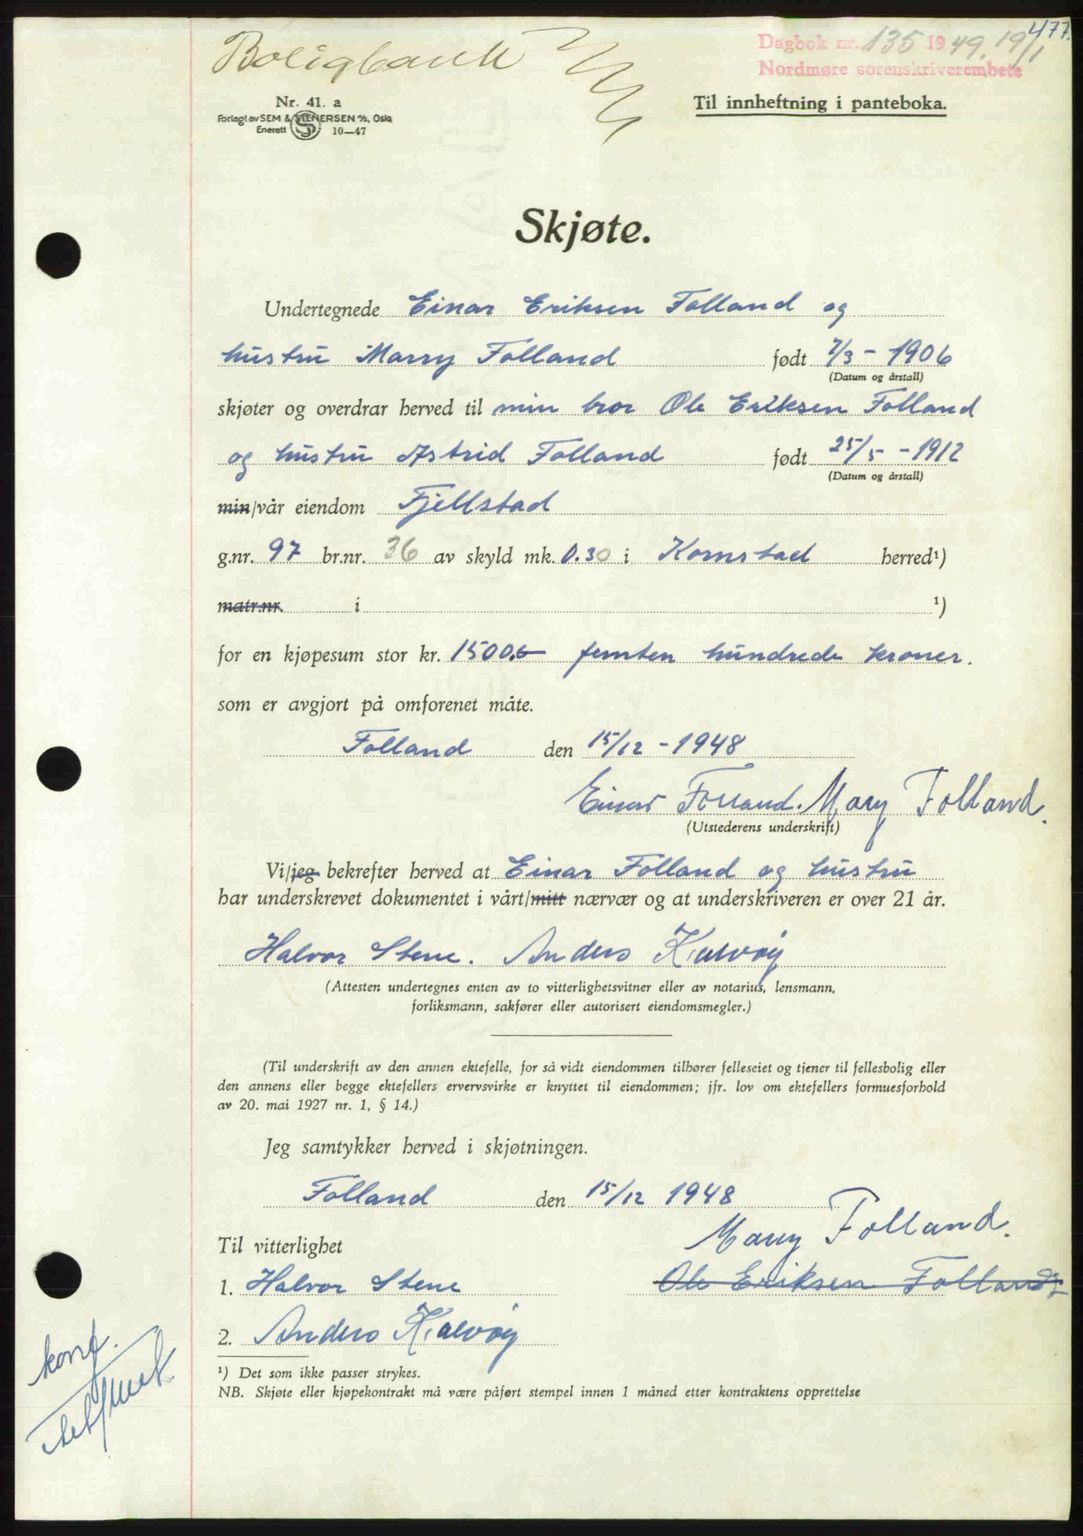 477.
Boligbank
Dagbok nr. 135 1949. 19/1
Nordmøre sorenskriverembete
Nr. 41. a
Forlagt av SEM & STENERSEN A/S, Oslo
Enerett S 10—47
Til innheftning i panteboka.
Skjøte.
Undertegnede Einar Eriksen Folland og
hustru Marry Folland født 7/3 - 1906
(Datum og årstall)
skjøter og overdrar herved til min bror Ole Eriksen Folland
og hustru Astrid Folland født 25/5 - 1912
(Datum og årstall)
min/vår eiendom Fjellstad
g.nr. 97 br.nr. 36 av skyld mk. 0.30 i Kornstad herred¹)
matr.nr. i ¹)
for en kjøpesum stor kr. 1500,- femten hundrede kroner.
som er avgjort på omforenet måte.
Folland den 15/12 - 1948
Einar Folland. Mary Folland.
(Utstederens underskrift)
Vi/jeg bekrefter herved at Einar Folland og hustru
har underskrevet dokumentet i vårt/mitt nærvær og at underskriveren er over 21 år.
Halvor Stene. Anders Kalvøy
(Attesten undertegnes enten av to vitterlighetsvitner eller av notarius, lensmann,
forliksmann, sakfører eller autorisert eiendomsmegler.)
(Til underskrift av den annen ektefelle, for så vidt eiendommen tilhører felleseiet og tjener til fellesbolig eller
den annens eller begge ektefellers ervervsvirke er knyttet til eiendommen; jfr. lov om ektefellers formuesforhold
av 20. mai 1927 nr. 1, § 14.)
Jeg samtykker herved i skjøtningen.
Folland den 15/12 1948
Mary Folland.
Til vitterlighet
1. Halvor Stene Ole Eriksen Folland
2. Anders Kalvøy
konf.
¹) Det som ikke passer strykes.
NB. Skjøte eller kjøpekontrakt må være påført stempel innen 1 måned etter kontraktens opprettelse